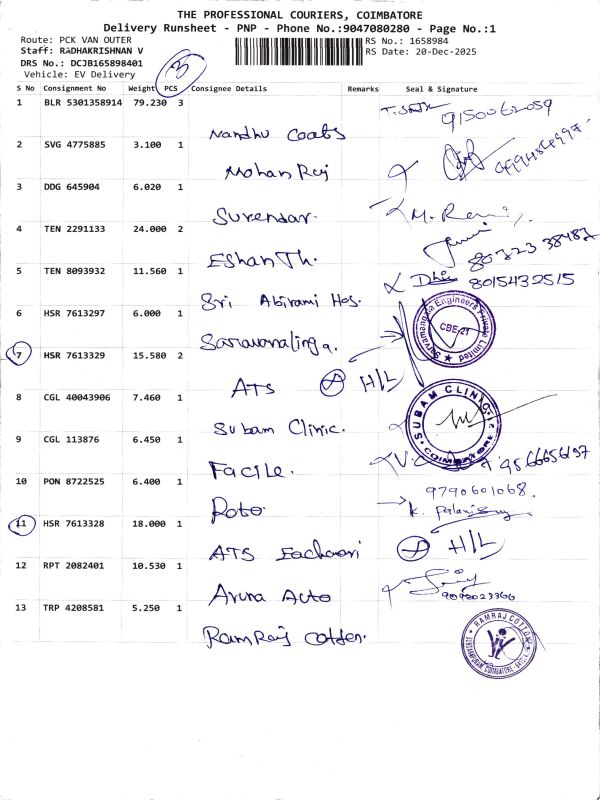 THE PROFESSIONAL COURIERS, COIMBATORE
Delivery Runsheet - PNP - Phone No.:9047080280 - Page No.:1
Route: PCK VAN OUTER
Staff: RADHAKRISHNAN V
DRS No.: DCJB165898401
Vehicle: EV Delivery
RS No.: 1658984
RS Date: 20-Dec-2025
3
S No Consignment No Weight PCS Consignee Details Remarks Seal & Signature
1 BLR 5301358914 79.230 3
Nandhu Coats 9150062059
2 SVG 4775885 3.100 1
Mohan Raj
3 DDG 645904 6.020 1
Surendar. M.
4 TEN 2291133 24.000 2
EShanTh. 80723 38487
5 TEN 8093932 11.560 1
Sri Abirami Hos. 8015432515
6 HSR 7613297 6.000 1
Saravanalinga. Engineers Private Limited CBE-21
7 HSR 7613329 15.580 2
ATS H/L
8 CGL 40043906 7.460 1
Subam Clinic. SUBAM CLINIC COIMBATORE
9 CGL 113876 6.450 1
Facile. 9566656197
10 PON 8722525 6.400 1
Roto 9790601068.
11 HSR 7613328 18.000 1
ATS H/L
12 RPT 2082401 10.530 1
Aruna Auto 9090023366
13 TRP 4208581 5.250 1
RamRaj Cotten. RAMRAJ COTTON